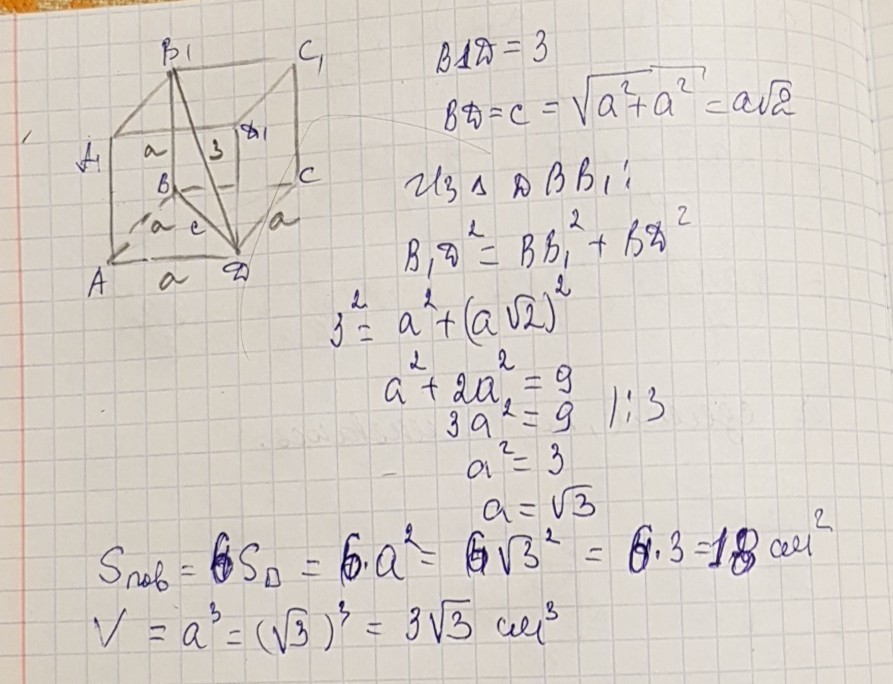 B₁ C₁
A₁ a 3 Д₁
B C
a c a
A a Д
B1Д = 3
BД = c = √(a² + a²) = a√2
Из Δ ДBB₁:
B₁Д² = BB₁² + BД²
3² = a² + (a√2)²
a² + 2a² = 9
3a² = 9 |:3
a² = 3
a = √3
Sпов = 6S□ = 6·a² = 6√3² = 6·3 = 18 см²
V = a³ = (√3)³ = 3√3 см³